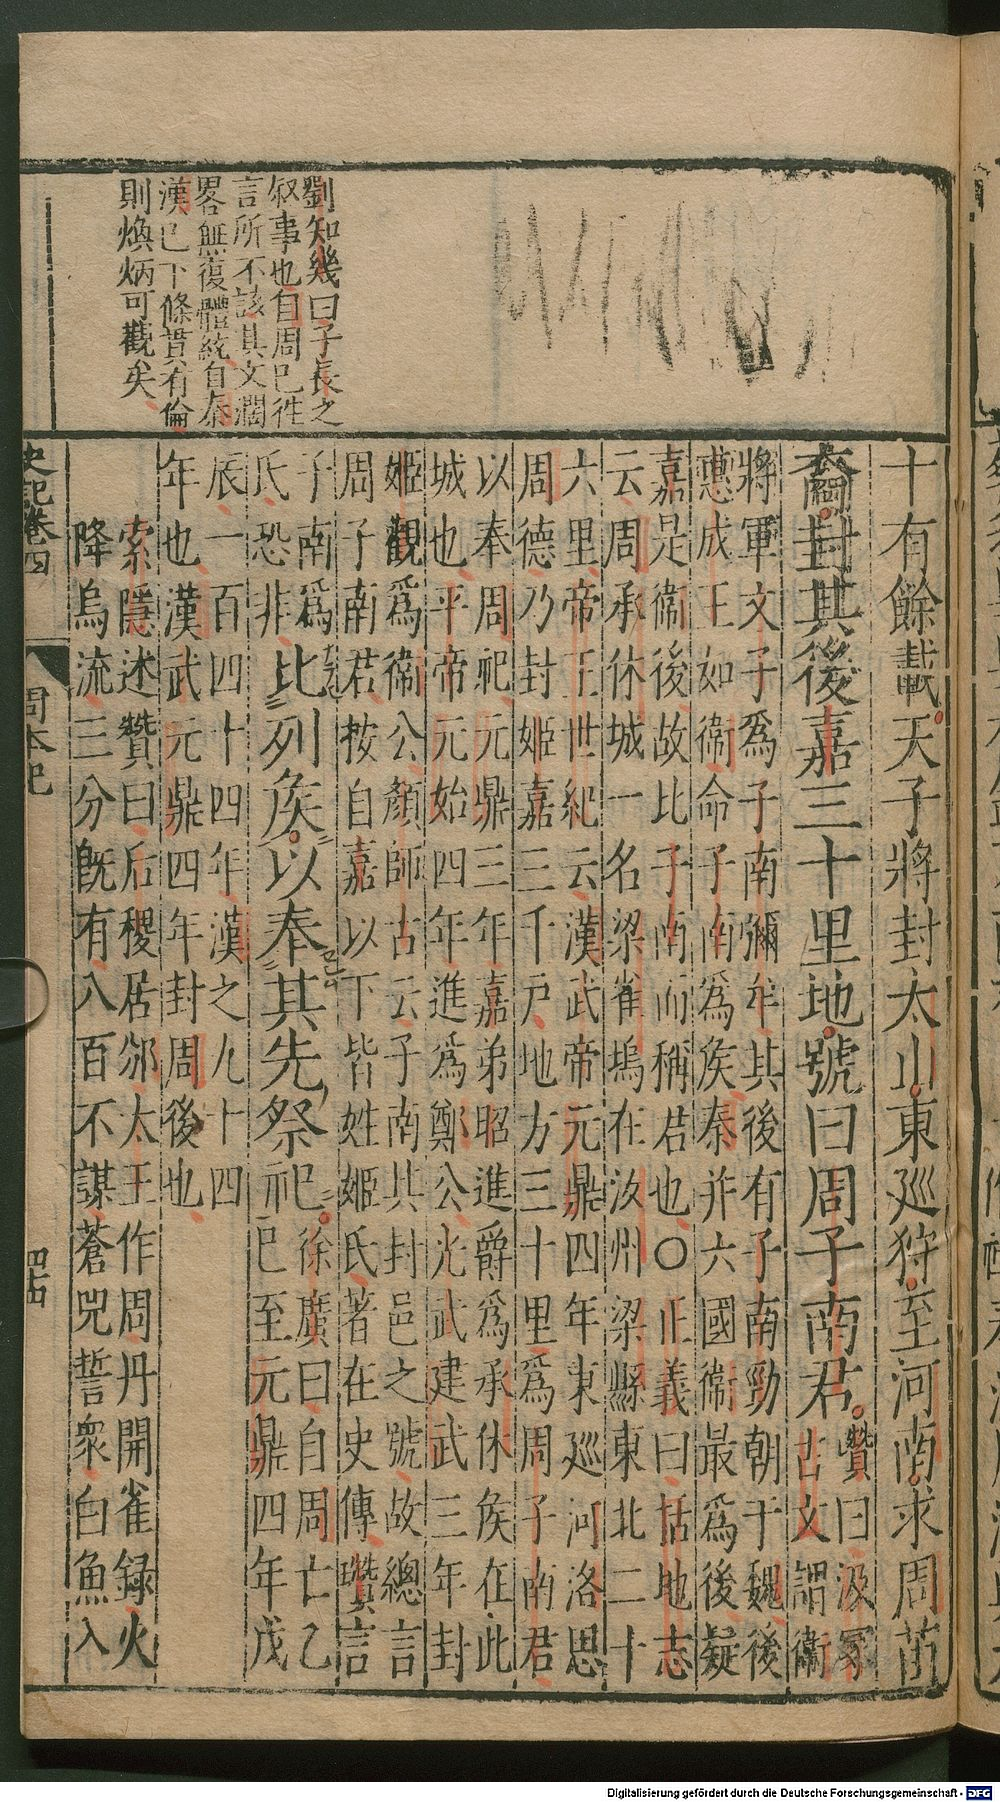 劉知幾曰子長之
叙事也自周巳徃
言所不該其文濶
畧無復體統自秦
漢巳下條貫有倫
則煥炳可觀矣
十有餘載天子將封太山東廵狩至河南求周苗
裔封其後嘉三十里地號曰周子南君
贊曰汲冢
古文謂衞
將軍文子爲子南彌牟其後有子南勁朝于魏後
惠成王如衞命子南爲侯秦并六國衞最爲後疑
嘉是衞後故比子南而稱君也〇正義曰括地志
云周承休城一名梁雀塢在汝州梁縣東北二十
六里帝王世紀云漢武帝元鼎四年東廵河洛思
周德乃封姬嘉三千戸地方三十里爲周子南君
以奉周祀元鼎三年嘉弟昭進爵爲承休侯在此
城也平帝元始四年進爲鄭公光武建武三年封
姬觀爲衞公顔師古云子南其封邑之號故總言
周子南君按自嘉以下皆姓姬氏著在史傳瓚言
子南爲
氏恐非
比列侯以奉其先祭祀
徐廣曰自周亡乙
巳至元鼎四年戊
辰一百四十四年漢之九十四
年也漢武元鼎四年封周後也
索隱述贊曰后稷居邰太王作周丹開雀録火
降烏流三分旣有八百不謀蒼兕誓衆白魚入
史記卷四
周本紀
Digitalisierung gefördert durch die Deutsche Forschungsgemeinschaft - DFG